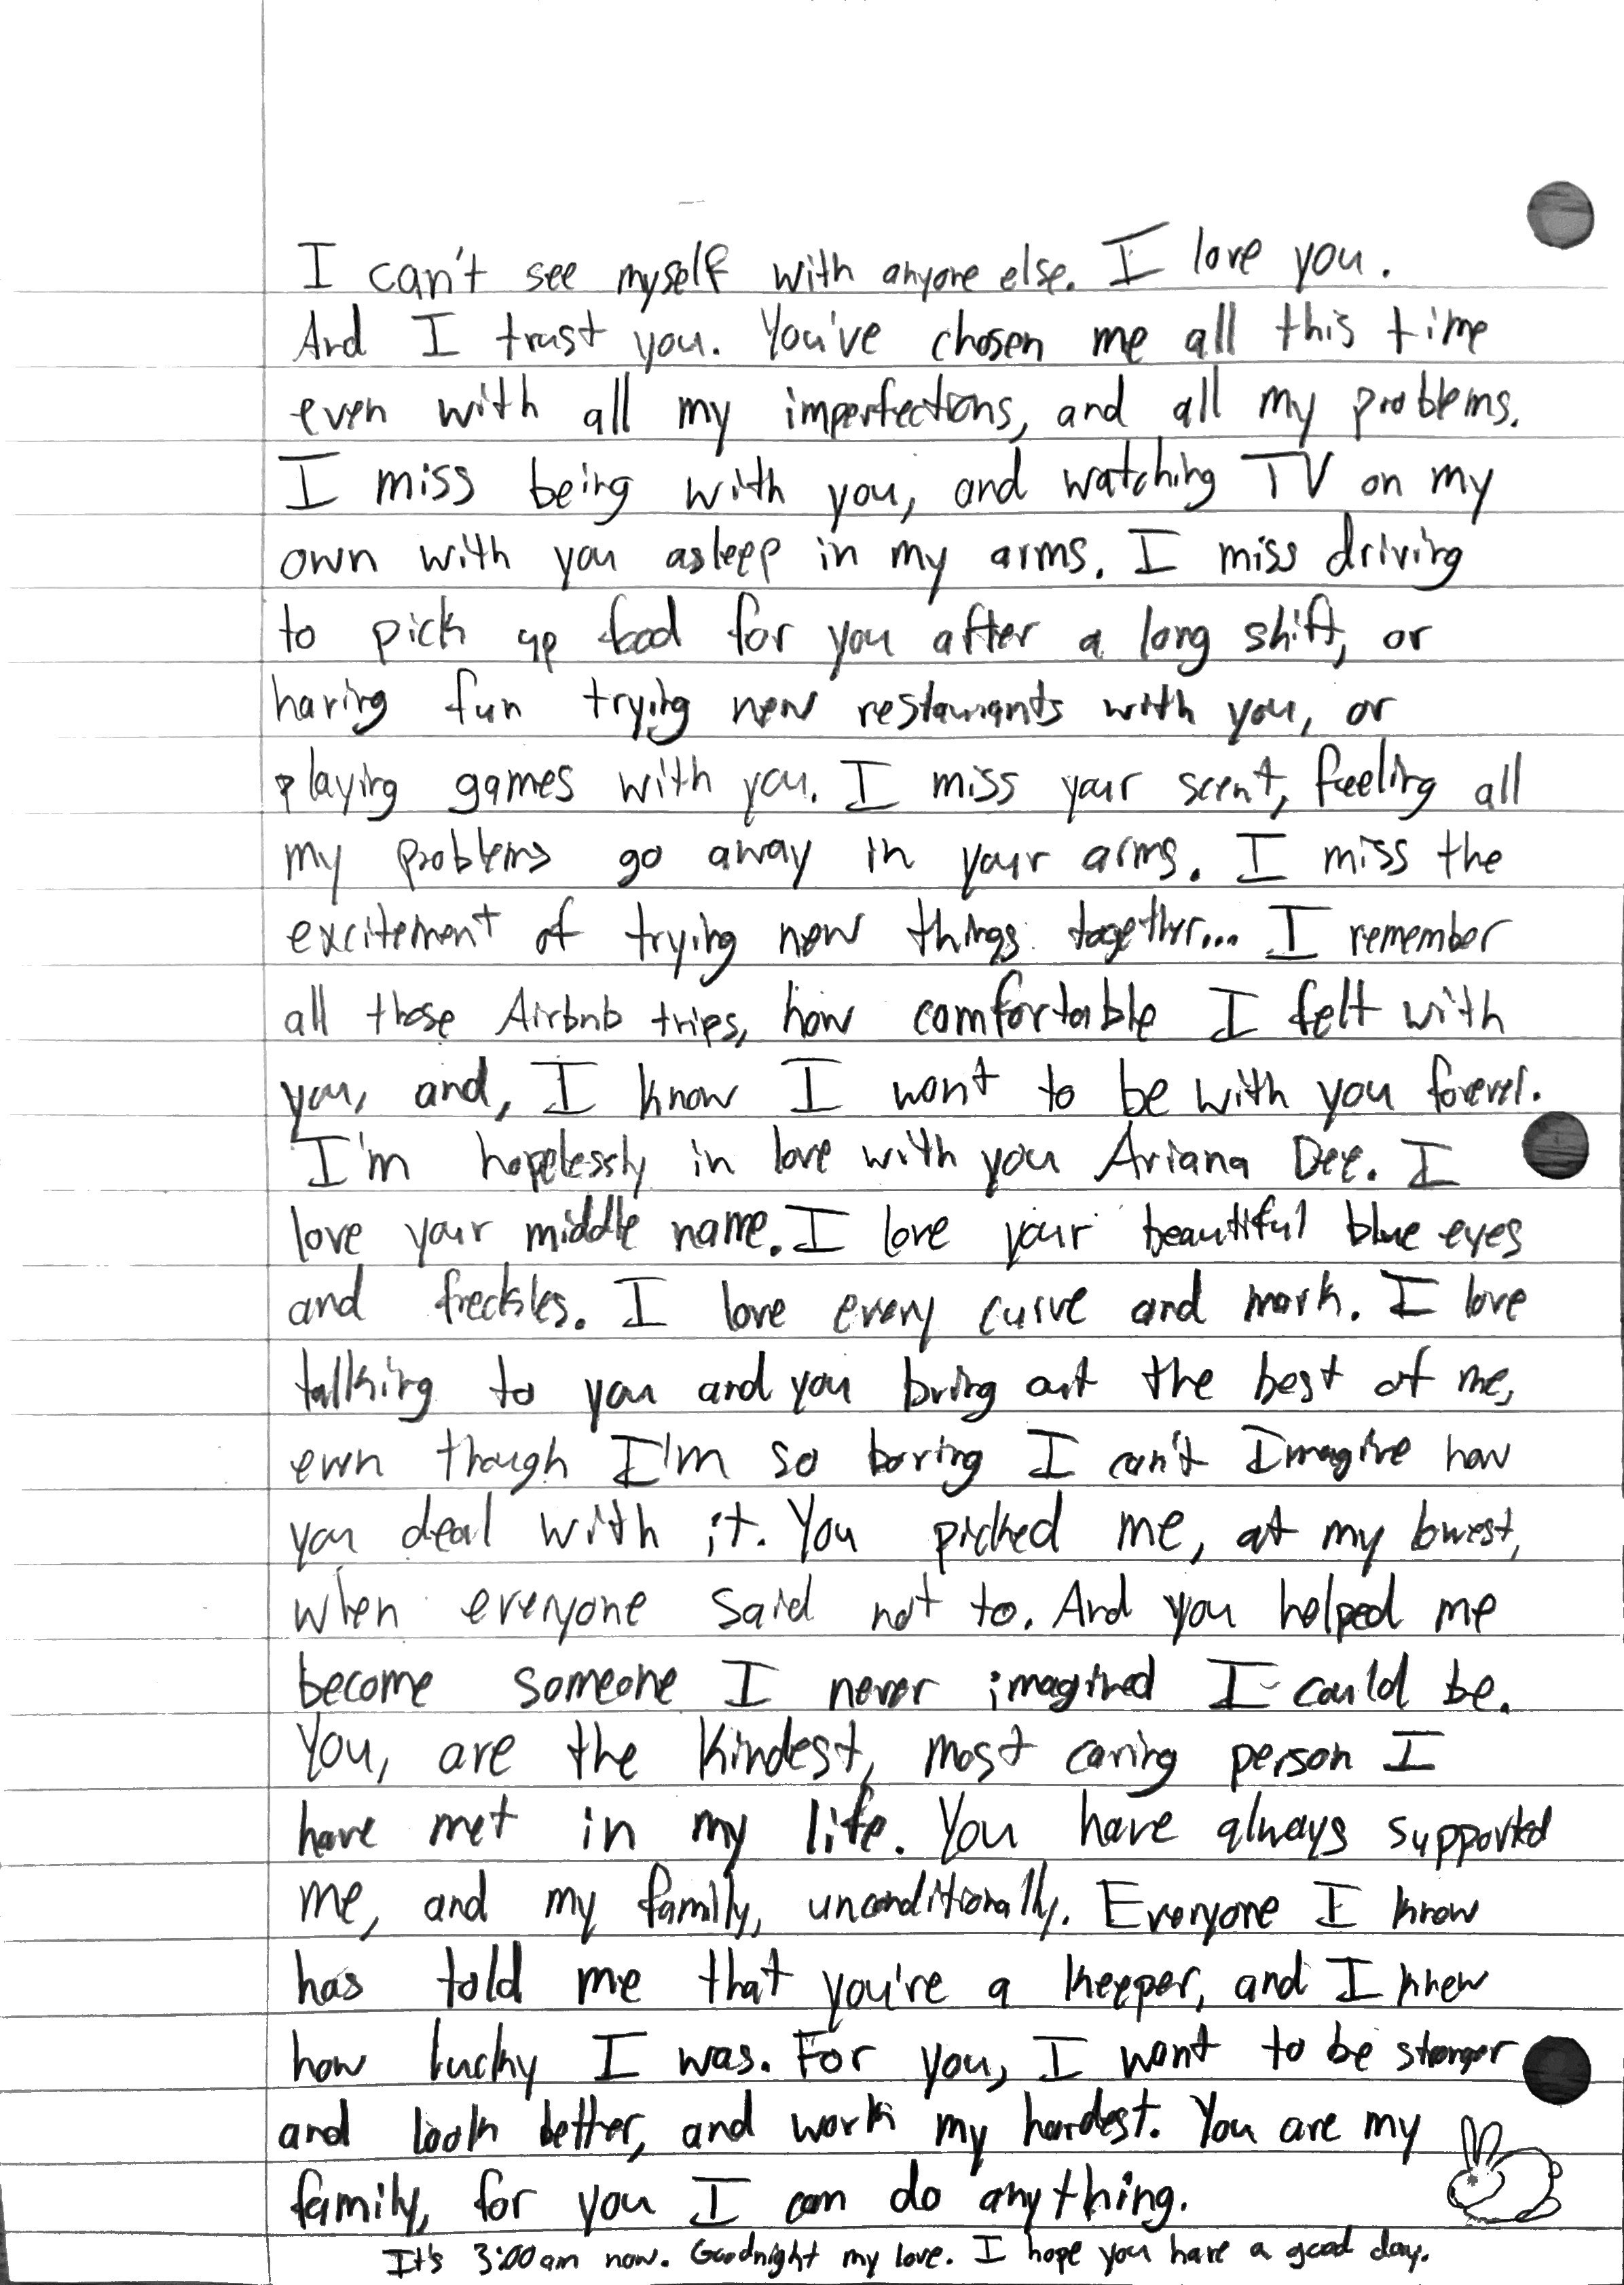 I can't see myself with anyone else. I love you.
And I trust you. You've chosen me all this time
even with all my imperfections, and all my problems.
I miss being with you, and watching TV on my
own with you asleep in my arms. I miss driving
to pick up food for you after a long shift, or
having fun trying new restaurants with you, or
playing games with you. I miss your scent, feeling all
my problems go away in your arms. I miss the
excitement of trying new things together... I remember
all those Airbnb trips, how comfortable I felt with
you, and, I know I want to be with you forever.
I'm hopelessly in love with you Ariana Dee. I
love your middle name. I love your beautiful blue eyes
and freckles. I love every curve and mark. I love
talking to you and you bring out the best of me,
even though I'm so boring I can't Imagine how
you deal with it. You picked me, at my lowest,
when everyone said not to. And you helped me
become someone I never imagined I could be.
You, are the kindest, most caring person I
have met in my life. You have always supported
me, and my family, unconditionally. Everyone I know
has told me that you're a keeper, and I knew
how lucky I was. For you, I want to be stronger
and look better, and work my hardest. You are my
family, for you I can do anything.
It's 3:00am now. Goodnight my love. I hope you have a good day.